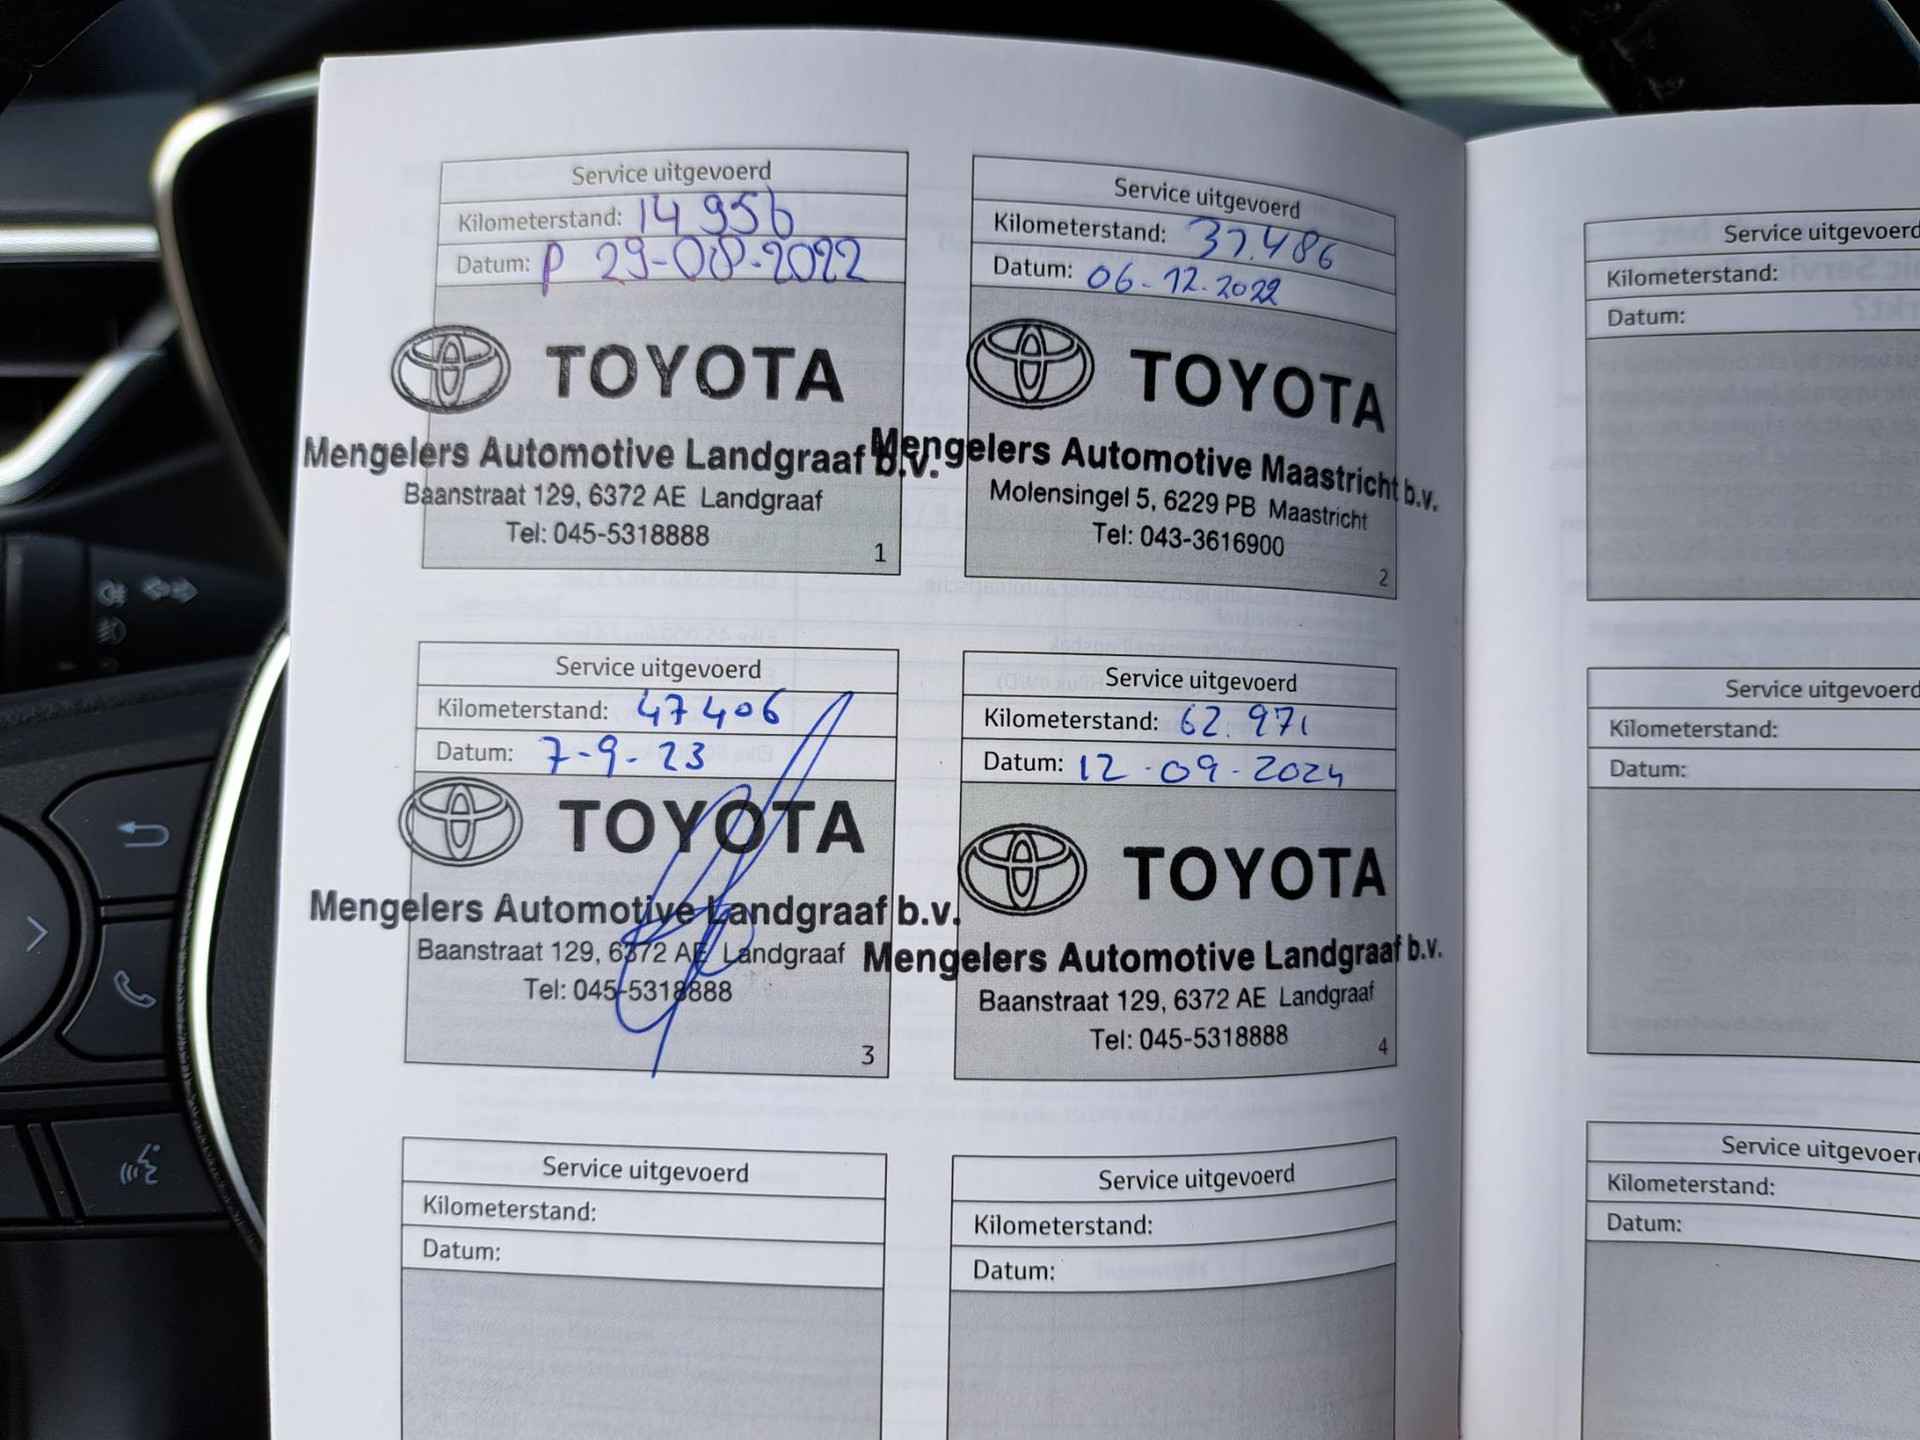 Service uitgevoerd
Kilometerstand: 14 956
Datum: p 29-08-2022
TOYOTA
Mengelers Automotive Landgraaf b.v.
Baanstraat 129, 6372 AE Landgraaf
Tel: 045-5318888
1
Service uitgevoerd
Kilometerstand: 37.486
Datum: 06-12.2022
TOYOTA
Mengelers Automotive Maastricht b.v.
Molensingel 5, 6229 PB Maastricht
Tel: 043-3616900
2
Service uitgevoerd
Kilometerstand: 47406
Datum: 7-9-23
TOYOTA
Mengelers Automotive Landgraaf b.v.
Baanstraat 129, 6372 AE Landgraaf
Tel: 045-5318888
3
Service uitgevoerd
Kilometerstand: 62.971
Datum: 12-09-2024
TOYOTA
Mengelers Automotive Landgraaf b.v.
Baanstraat 129, 6372 AE Landgraaf
Tel: 045-5318888
4
Service uitgevoerd
Kilometerstand:
Datum:
Service uitgevoerd
Kilometerstand:
Datum:
Service uitgevoerd
Kilometerstand:
Datum:
Service uitgevoerd
Kilometerstand:
Datum:
Service uitgevoer
Kilometerstand:
Datum: